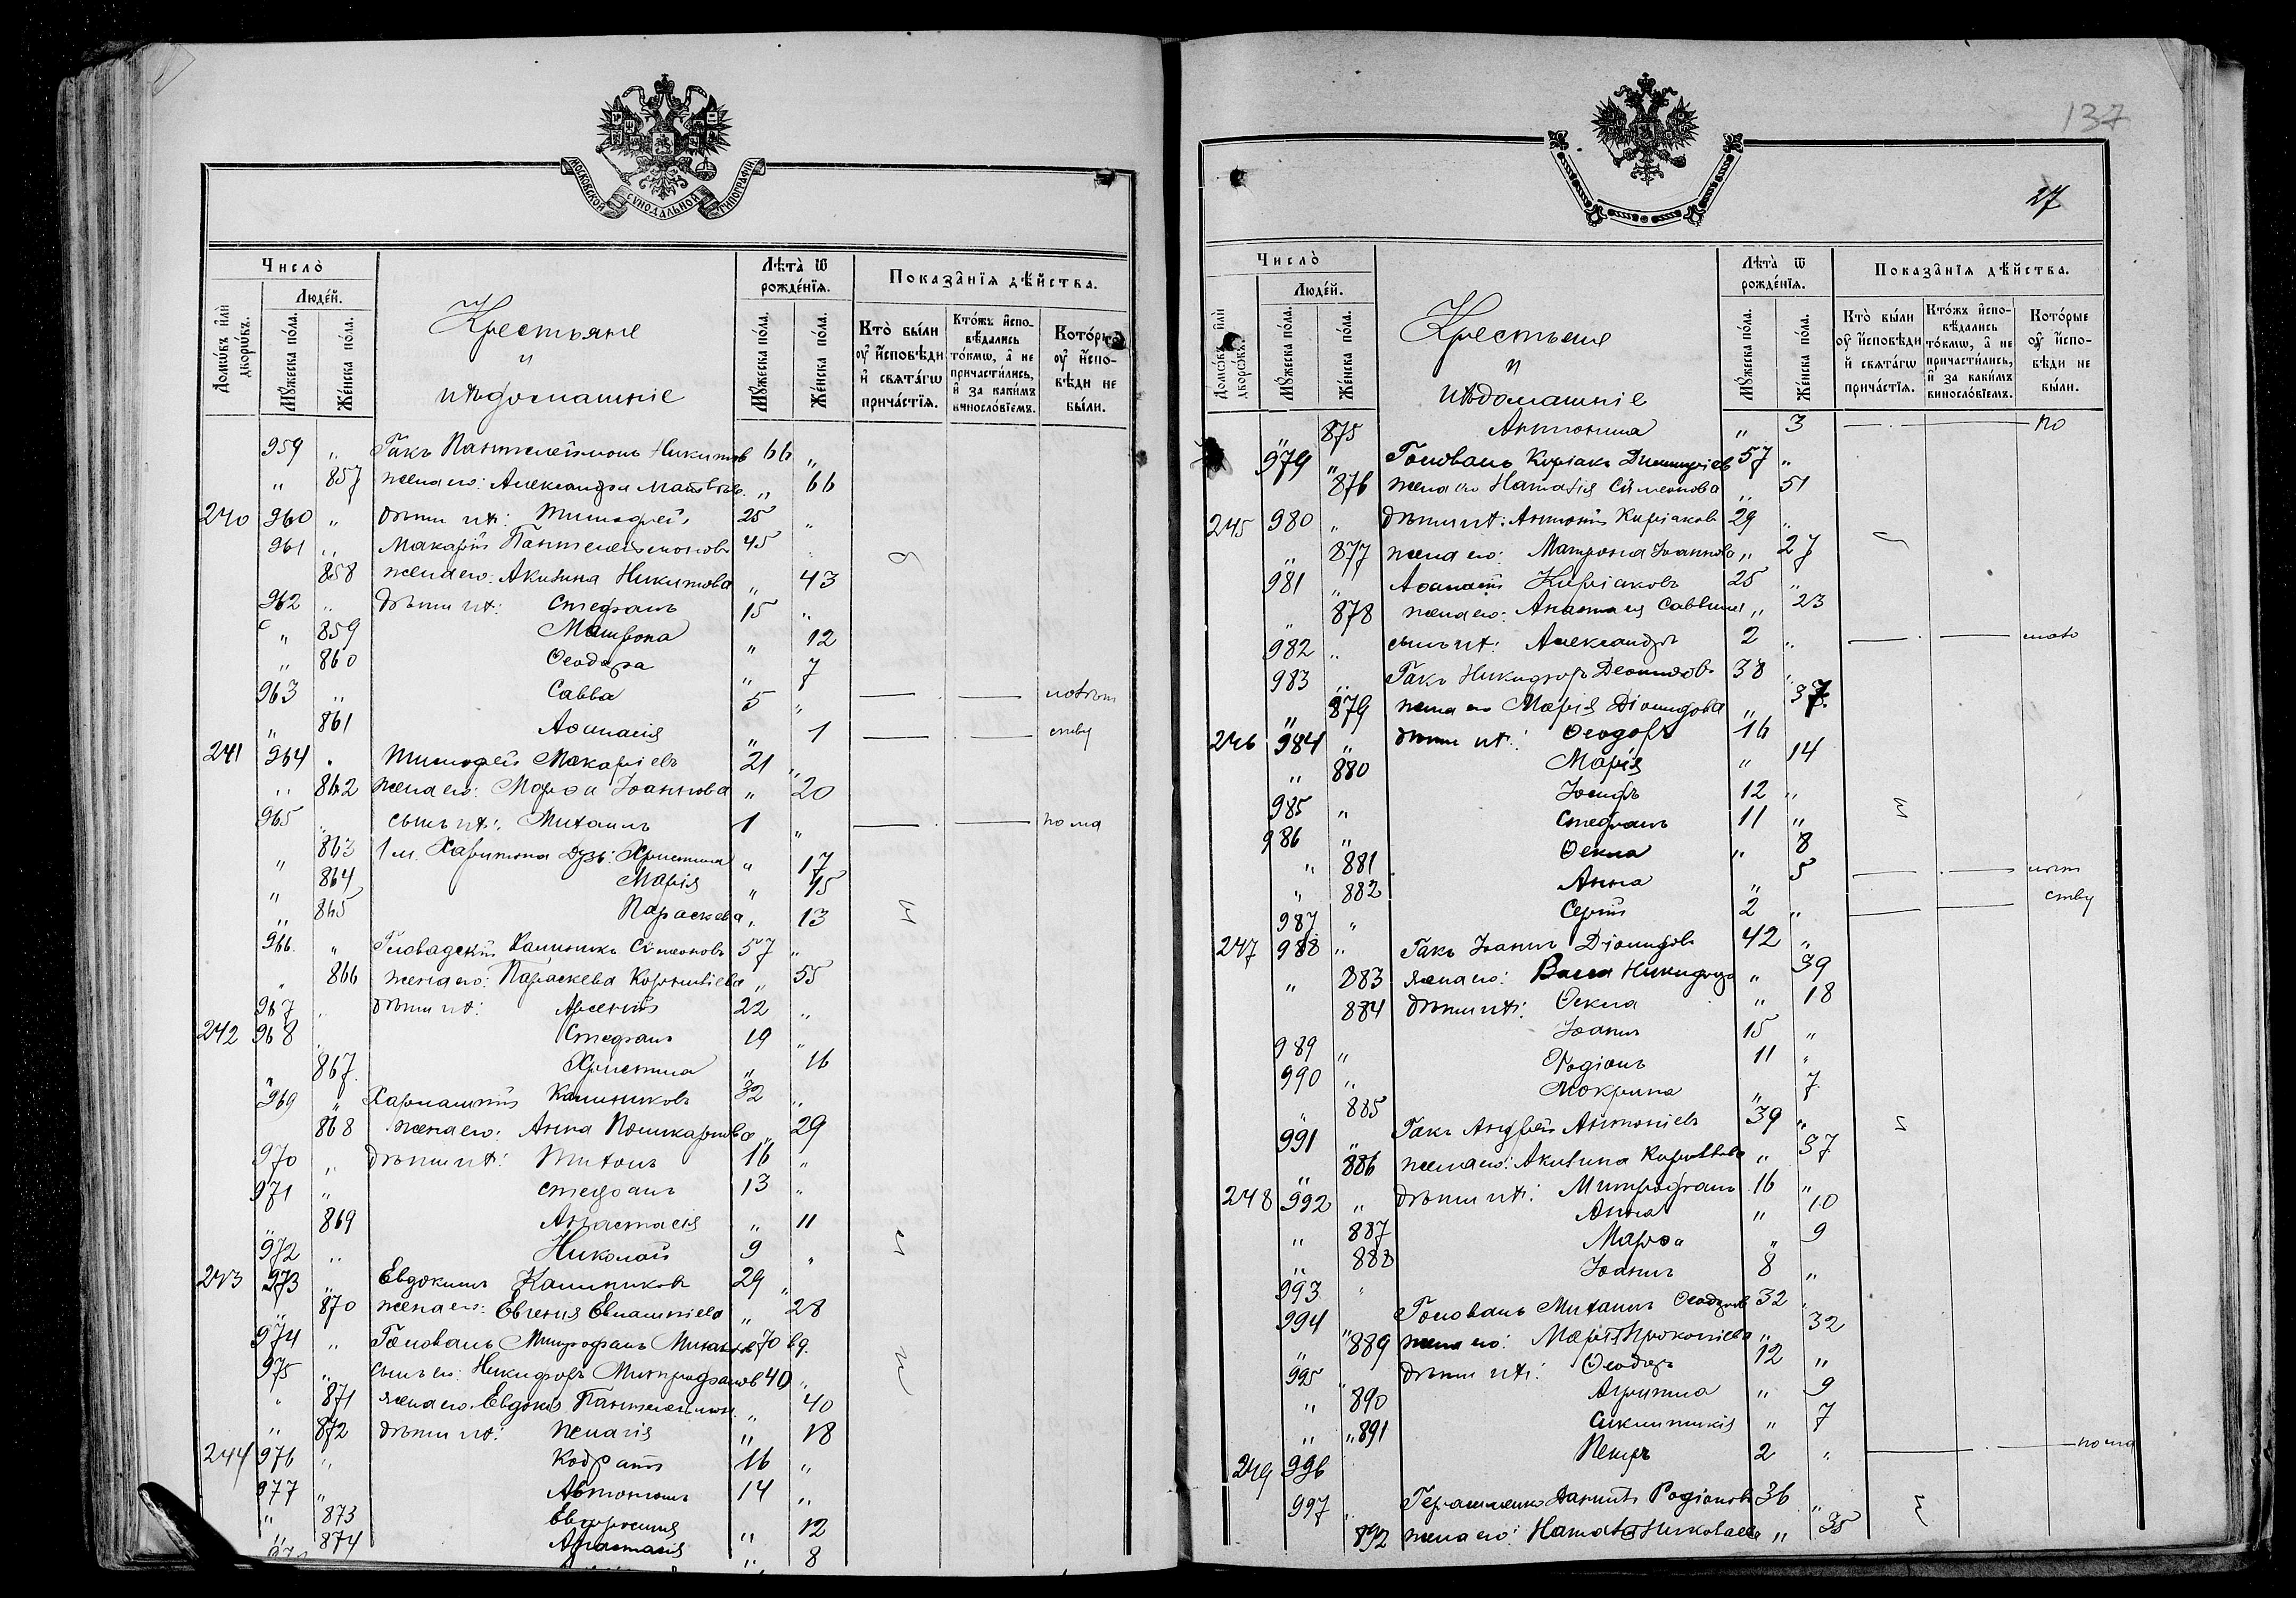 МОСКОВСКОЙ СУНОДАЛЬНОЙ ТИПОГРАФІИ
Число̀
Люде́й.
Домѡ́въ и҆лѝ дворѡ́въ.
Мꙋ́жеска по́ла.
Же́нска по́ла.
Крестьяне
и
ихъ домашніе
Лѣта̀ ѿ рожде́нїѧ.
Мꙋ́жеска по́ла.
Же́нска по́ла.
Показа̑нїѧ дѣ́йства.
Кто̀ бы́ли ᲂу҆ и҆сповѣди и҆ свѧта́гѡ прича́стїѧ.
Кто́жъ и҆спо-вѣ́дались то́кмѡ, а҆ не причасти́лись, и҆ за каки́мъ винословїемъ.
Кото́рые ᲂу҆ и҆спо-вѣди не бы́ли.
959 „ Гакъ Пантелеймонъ Никитовъ 66 „
„ 857 жена его: Александра Матѳѣева „ 66
240 960 „ дѣти ихъ: Тимофей 25 „
961 „ Макарій Пантелеймоновъ 45 „
858 жена его: Акилина Никитова „ 43
962 „ дѣти ихъ: Стефанъ 15 „
„ 859 Матрона „ 12
„ 860 Ѳеодора „ 7
963 „ Савва 5 „
„ 861 Аѳанасія „ 1
241 964 „ Тимофей Макаріевъ 21 „
„ 862 жена его: Марѳа Іоаннова „ 20
965 „ сынъ ихъ: Михаилъ 1 „
„ 863 Христина „ 17
„ 864 Марія „ 15
„ 865 Параскева „ 13
966 „ Калиникъ Симеоновъ 57 „
„ 866 жена его: Параскева Корниліева „ 55
967 „ дѣти ихъ: Арсеній 22 „
242 968 „ Стефанъ 19 „
„ 867 Христина „ 16
969 „ Харлампій Калиниковъ 32 „
868 жена его: Анна Поликарпова „ 29
970 „ дѣти ихъ: Титонъ 16 „
971 „ Стефанъ 13 „
„ 869 Анастасія „ 11
972 „ Николай 9 „
243 973 „ Евдокимъ Калиниковъ 29 „
„ 870 жена его: Евгенія Евлампіева „ 28
974 „ Голованъ Митрофанъ 70 вд.
975 „ сынъ его: Никифоръ Митрофановъ 40 „
„ 871 жена его: Евдокія Пантелеимон. „ 40
„ 872 дѣти ихъ: Пелагія „ 18
244 976 „ Кодратъ 16 „
977 „ Автономъ 14 „
„ 873 Евфросинія „ 12
„ 874 Анастасія „ 8
137
27
Число̀
Люде́й.
Домѡ́въ и҆лѝ дворѡ́въ.
Мꙋ́жеска по́ла.
Же́нска по́ла.
Крестьяне
и
ихъ домашніе
Лѣта̀ ѿ рожде́нїѧ.
Мꙋ́жеска по́ла.
Же́нска по́ла.
Показа̑нїѧ дѣ́йства.
Кто̀ бы́ли ᲂу҆ и҆сповѣди и҆ свѧта́гѡ прича́стїѧ.
Кто́жъ и҆спо-вѣ́дались то́кмѡ, а҆ не причасти́лись, и҆ за каки́мъ винословїемъ.
Кото́рые ᲂу҆ и҆спо-вѣди не бы́ли.
„ 875 Антонина „ 3 по
979 „ Голованъ Киріакъ Димитріевъ 57 „
„ 876 жена его Наталія Симеонова „ 51
245 980 „ дѣти ихъ: Антоній Киріаковъ 29 „
„ 877 жена его: Матрона Іоаннова „ 27
981 „ Аѳанасій Киріаковъ 25 „
„ 878 жена его: Анастасія Саввина „ 23
982 „ сынъ ихъ: Александръ 2 „
983 „ Гакъ Никифоръ Діомидовъ 38 „
„ 879 жена его Марія Діомидова „ 37
246 984 „ дѣти ихъ: Ѳеодоръ 16
„ 880 Марія „ 14
985 „ Іосифъ 12 „
986 „ Стефанъ 11 „
„ 881 Ѳекла „ 8
„ 882 Анна „ 5
987 „ Сергій 2 „
247 988 „ Гакъ Іоаннъ Діомидовъ 42 „
„ 883 жена его: Васса „ 39
884 дѣти ихъ: Ѳекла „ 18
989 „ Іоаннъ 15 „
990 „ Родіонъ 11 „
„ 885 Мокрина „ 7
991 „ Гакъ Андрей Антоніевъ 39 „
„ 886 жена его: Акилина „ 37
248 992 „ дѣти ихъ: Митрофанъ 16 „
„ 887 Анна „ 10
„ 888 Марѳа „ 9
993 „ Іоаннъ 8 „
994 „ Голованъ Михаилъ Ѳеодоровъ 32 „
„ 889 жена его: Марія Прокопіева „ 32
995 „ дѣти ихъ: Ѳеодоръ 12 „
„ 890 Агрипина „ 9
„ 891 Сиклитикія „ 7
249 996 Петръ 2 „
997 „ Герасименко Даніилъ Родіоновъ 36 „
892 жена его: Наталія Николаева „ 35